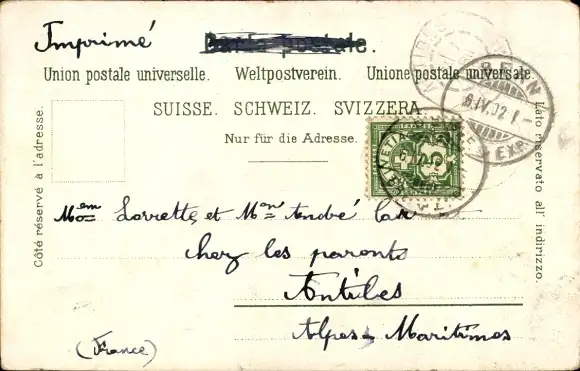 Imprimé
Carte postale.
Union postale universelle. Weltpostverein. Unione postale universale.
SUISSE. SCHWEIZ. SVIZZERA
Nur für die Adresse.
Côté réservé à l'adresse.
Lato riservato all' indirizzo.
BERN
6.IV.02.1-
EXP.
HELVETIA
FRANCO
5
et Mon André
chez les parents
Antibes
Alpes Maritimes
(France)